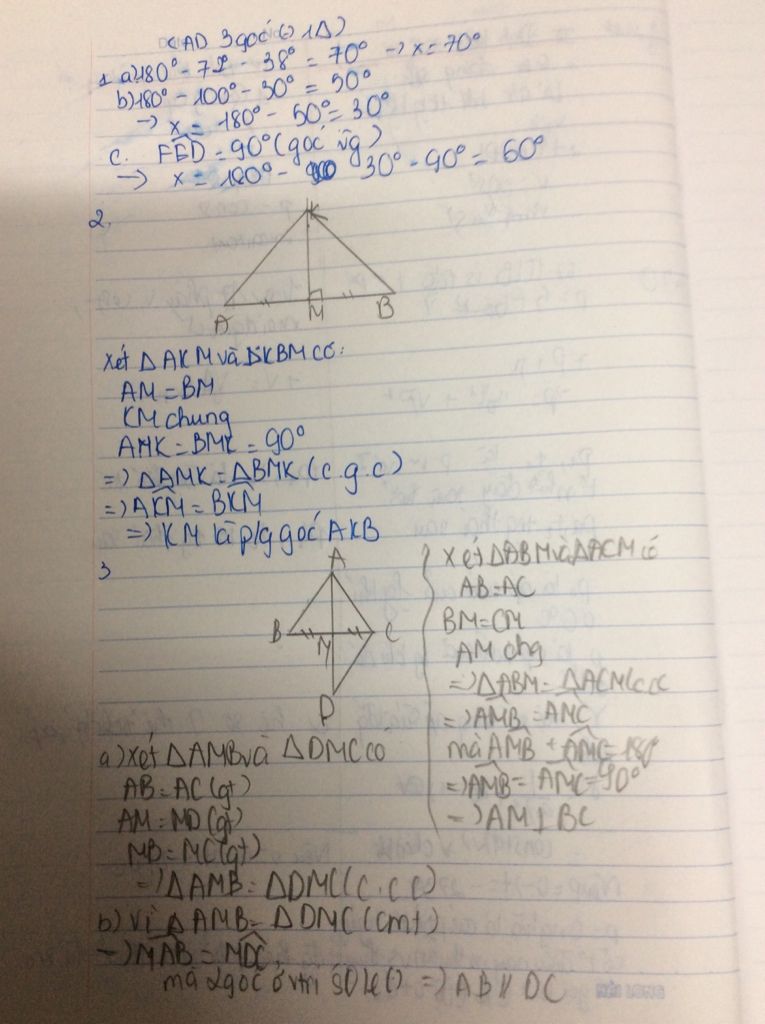 (AD 3 góc () 1Δ)
1. a) 180° - 72° - 38° = 70° -> x = 70°
b) 180° - 100° - 30° = 50°
-> x = 180° - 50° = 30°
c. FED = 90° (góc vg)
-> x = 180° - 30° - 90° = 60°
2.
K
A M B
Xét ΔAKM và ΔKBM có:
AM = BM
KM chung
AMK = BMK = 90°
=> ΔAMK = ΔBMK (c.g.c)
=> AKM = BKM
=> KM là p/g góc AKB
3
A
B M C
D
a) Xét ΔAMB và ΔDMC có
AB = AC (gt)
AM = MD (gt)
MB = MC (gt)
=> ΔAMB = ΔDMC (c.c.c)
b) Vì ΔAMB = ΔDMC (cmt)
-> MAB = MDC,
mà 2 góc ở vtrí SOle () => AB // DC
Xét ΔABM và ΔACM có
AB = AC
BM = CM
AM chg
=> ΔABM = ΔACM (ccc
=> AMB = AMC
mà AMB + AMC = 180°
=> AMB = AMC = 90°
=> AM ⊥ BC